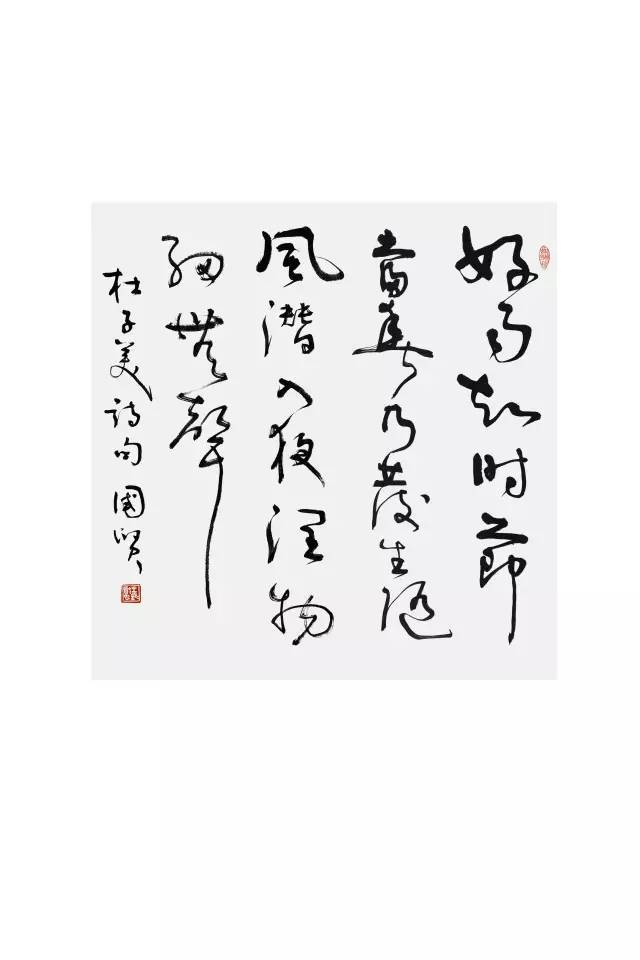 好雨知时節
當春乃發生随
風潜入夜润物
细無聲
杜子美詩句 國贤